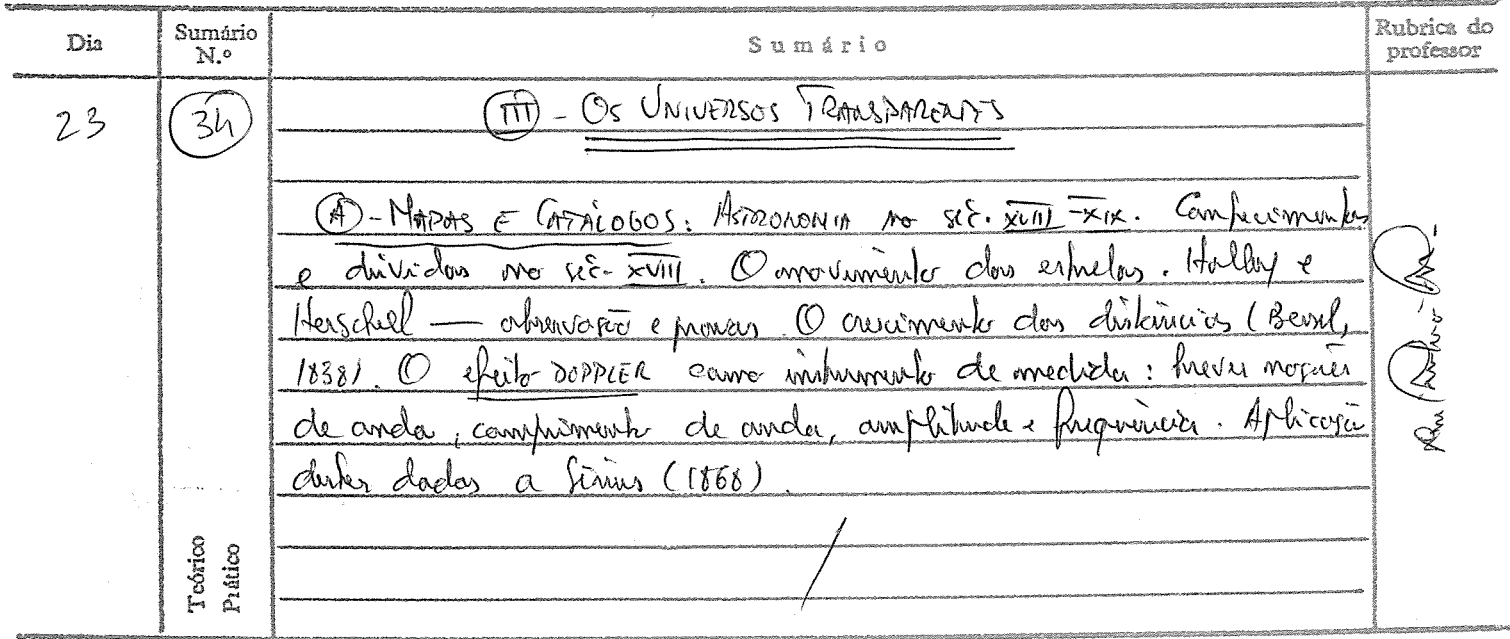 Dia Sumário N.º Sumário Rubrica do professor
23 34 III - OS UNIVERSOS TRANSPARENTES
A - MAPAS E CATÁLOGOS: ASTRONOMIA no séc. XVIII - XIX. Conhecimentos
e dúvidas no séc. XVIII. O movimento das estrelas. Halley e
Herschel — observação e provas. O crescimento das distâncias (Bessel,
1838). O efeito DOPPLER como instrumento de medida: breves noções
de onda, comprimento de onda, amplitude e frequência. Aplicação
destes dados a Sirius (1868).
Teórico
Prático